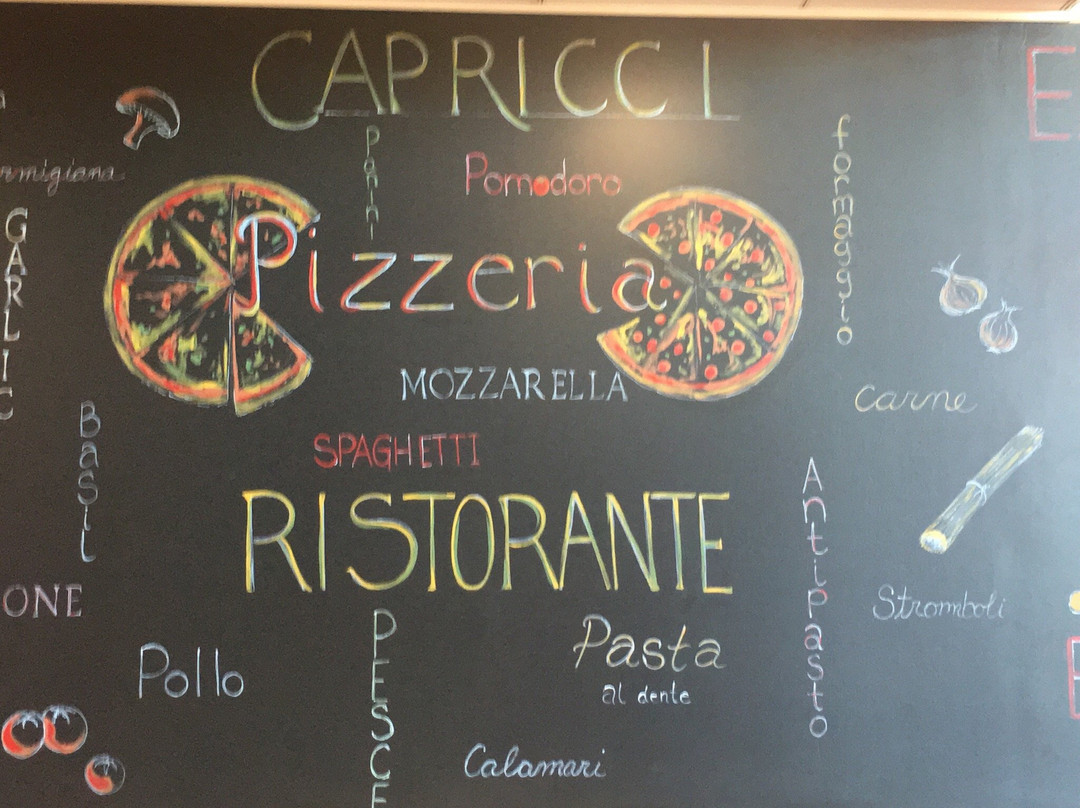 CAPRICCI
E
Panini
Pomodoro
formaggio
rmigiana
Pizzeria
GARLIC
MOZZARELLA
carne
Basil
SPAGHETTI
RISTORANTE
Antipasto
ONE
Stromboli
PESCE
Pasta
al dente
Pollo
Calamari